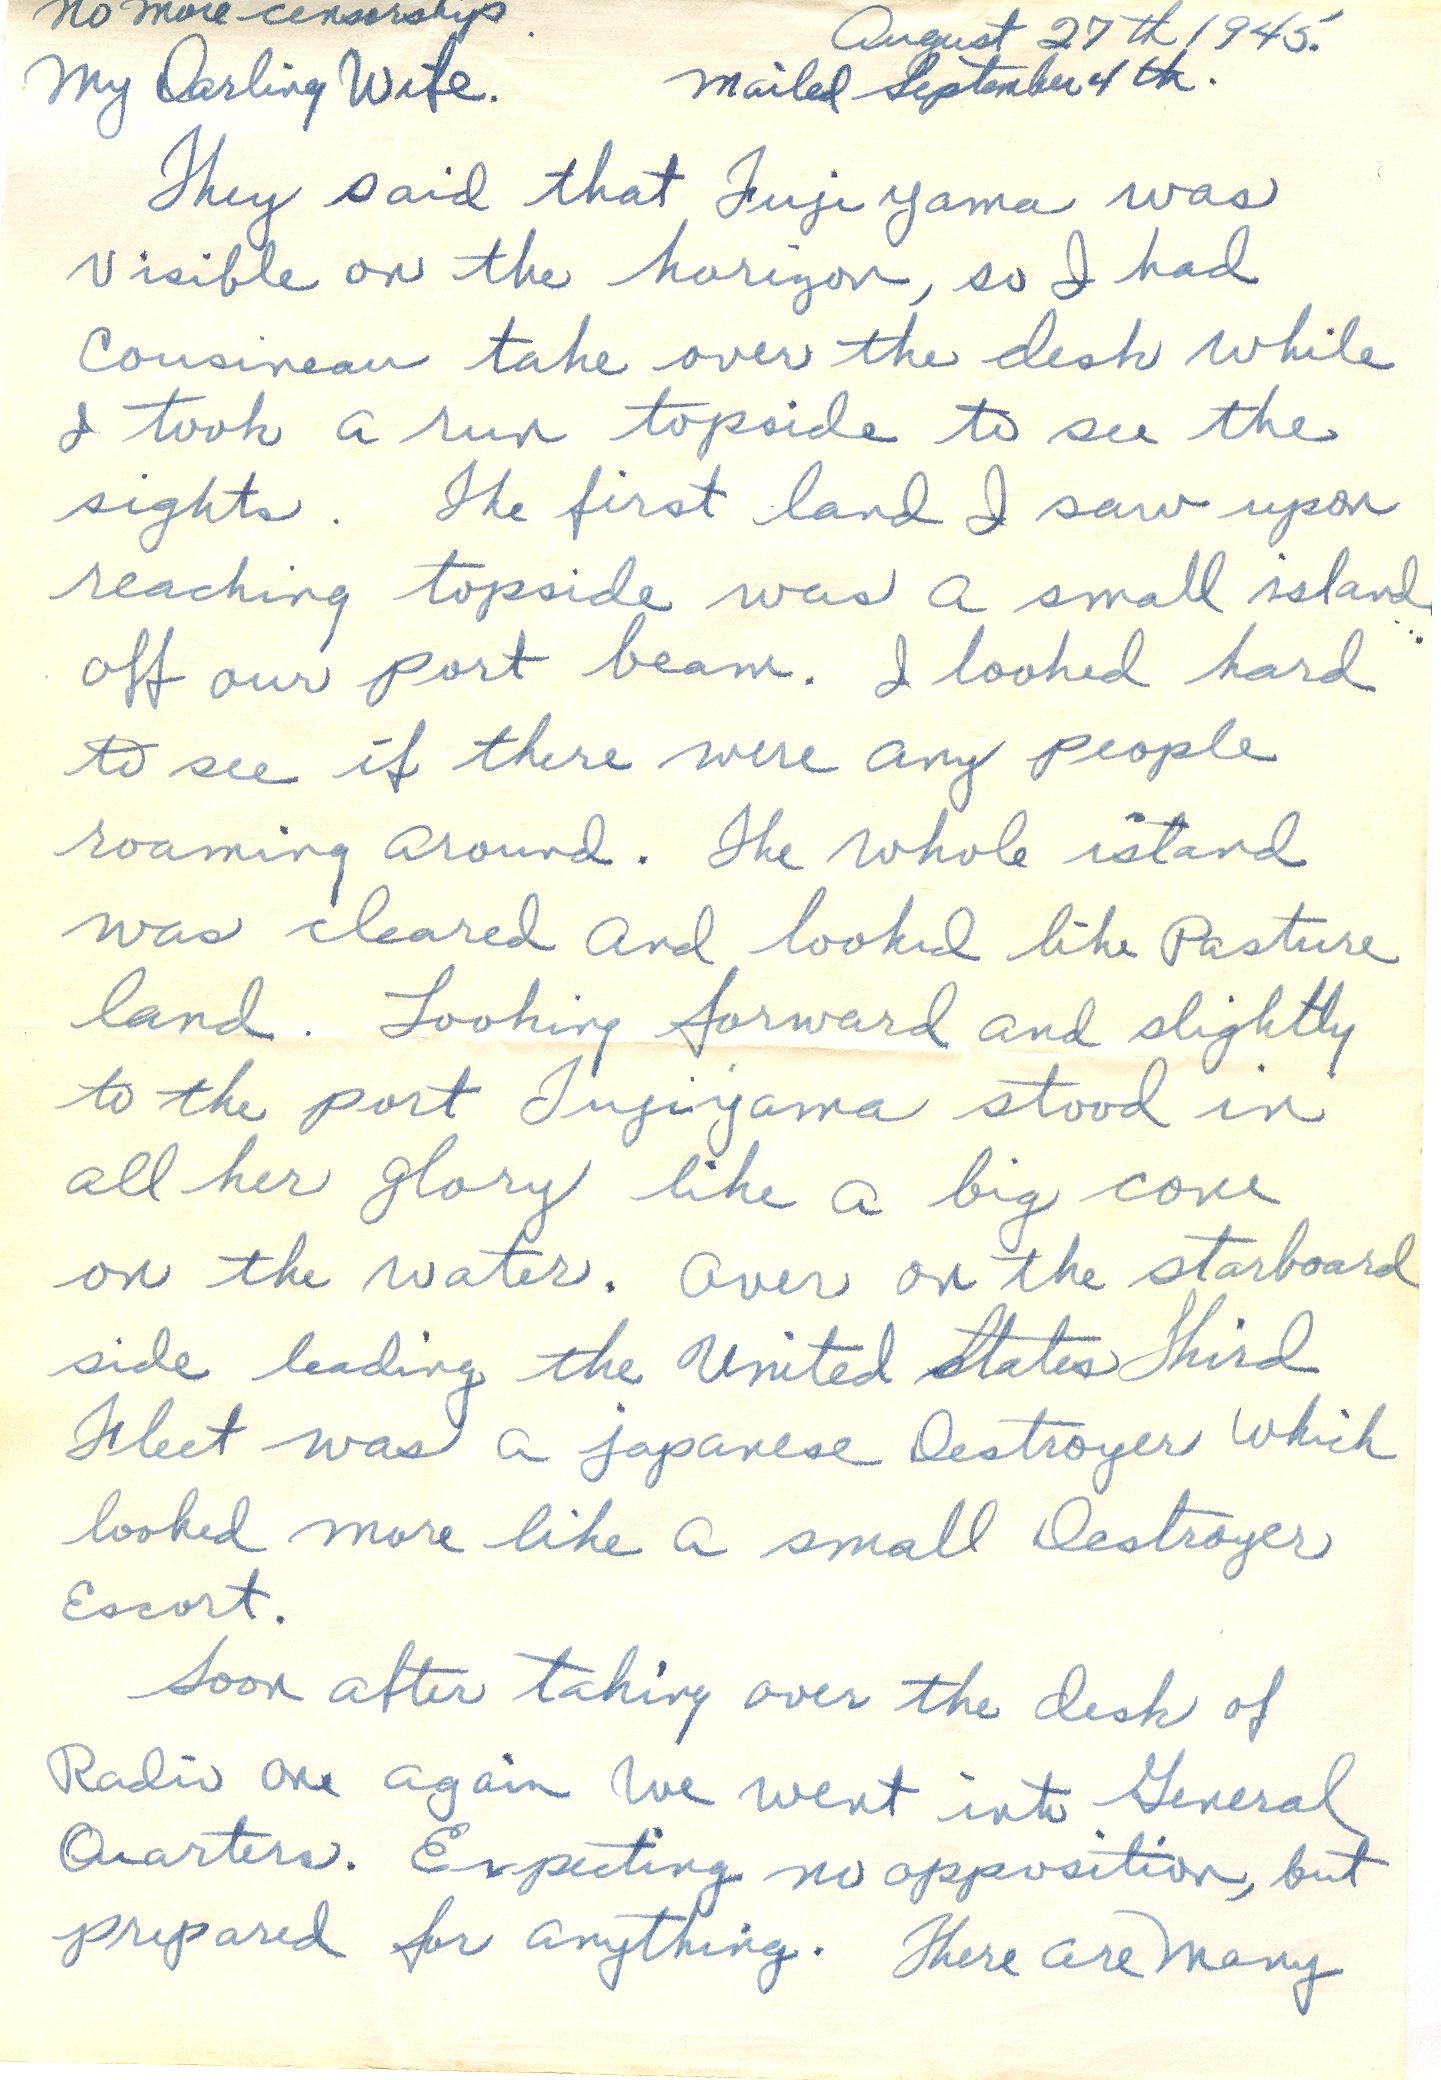 No more censorship.
August 27th 1945.
My Darling Wife.
Mailed September 4th.
They said that Fujiyama was
visible on the horizon, so I had
Cousineau take over the desk while
I took a run topside to see the
sights. The first land I saw upon
reaching topside was a small island
off our port beam. I looked hard
to see if there were any people
roaming around. The whole island
was cleared and looked like Pasture
land. Looking forward and slightly
to the port Fujiyama stood in
all her glory like a big cone
on the water. Over on the starboard
side leading the United States Third
Fleet was a japanese Destroyer which
looked more like a small Destroyer
Escort.
Soon after taking over the desk of
Radio one again we went into General
Quarters. Expecting no opposition, but
prepared for anything. There are many